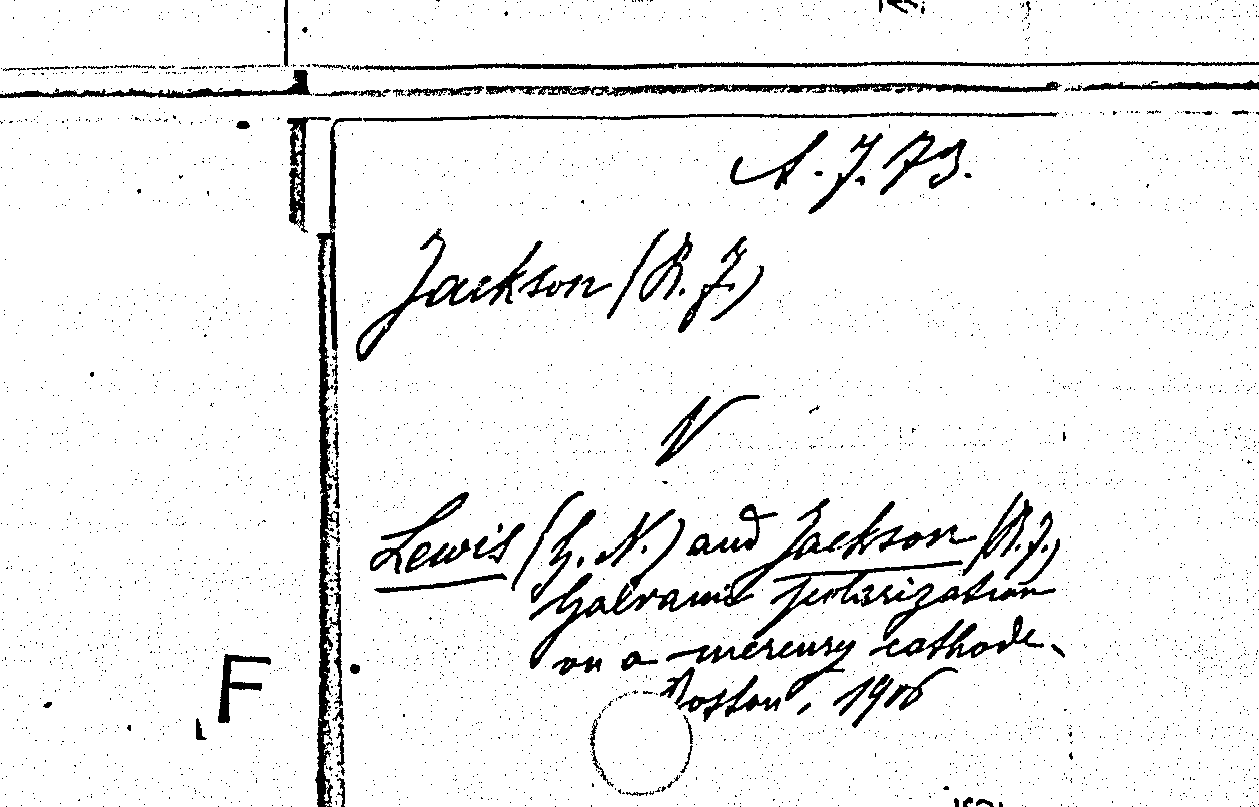 A.J.73.
Jackson (R.F.)
V
Lewis (G.N.) and Jackson (R.F.)
Galvanic polarization
on a mercury cathode.
Boston, 1906
F